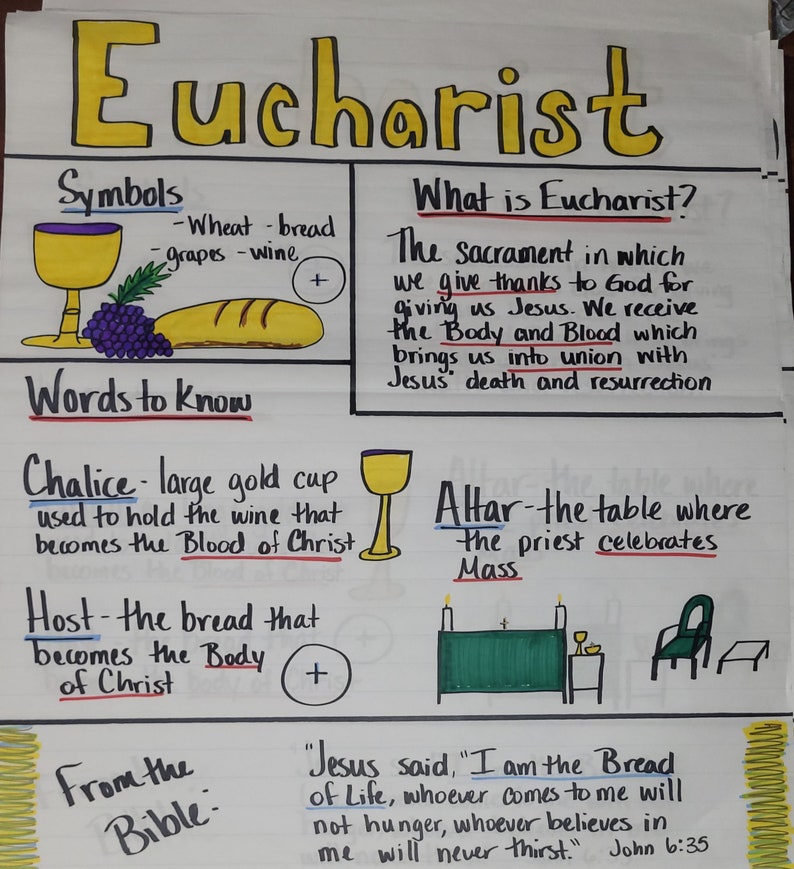 Eucharist
Symbols
-Wheat -bread
-grapes -wine
What is Eucharist?
The sacrament in which
we give thanks to God for
giving us Jesus. We receive
the Body and Blood which
brings us into union with
Jesus' death and resurrection
Words to Know
Chalice - large gold cup
used to hold the wine that
becomes the Blood of Christ
Altar - the table where
the priest celebrates
Mass
Host - the bread that
becomes the Body
of Christ
From the
Bible:
"Jesus said, "I am the Bread
of Life, whoever comes to me will
not hunger, whoever believes in
me will never thirst." John 6:35